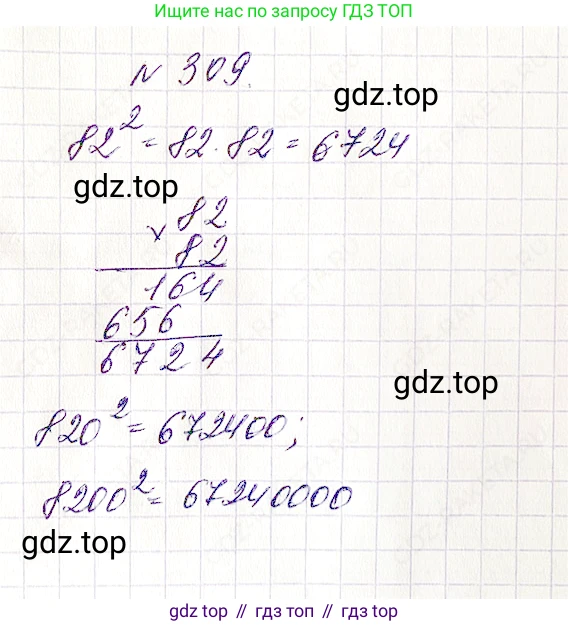 Ищите нас по запросу ГДЗ ТОП
№ 309.
gdz.top
82² = 82 · 82 = 6724
gdz.top
× 82
82
164
656
6724
gdz.top
820² = 672400;
8200² = 67240000
gdz.top
gdz top // гдз топ // гдз.top